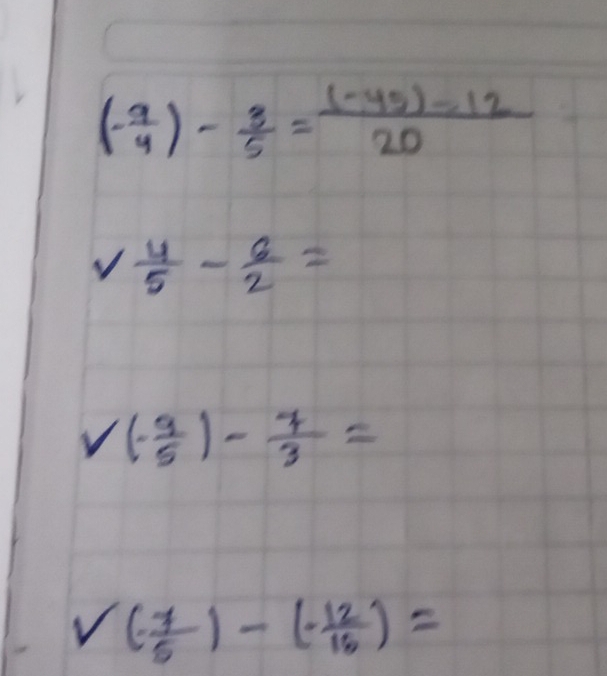 (-9/4) - 3/5 = (-45) - 12 / 20
✓ 4/5 - 6/2 =
✓ (-9/5) - 7/3 =
✓ (-7/5) - (-12/15) =